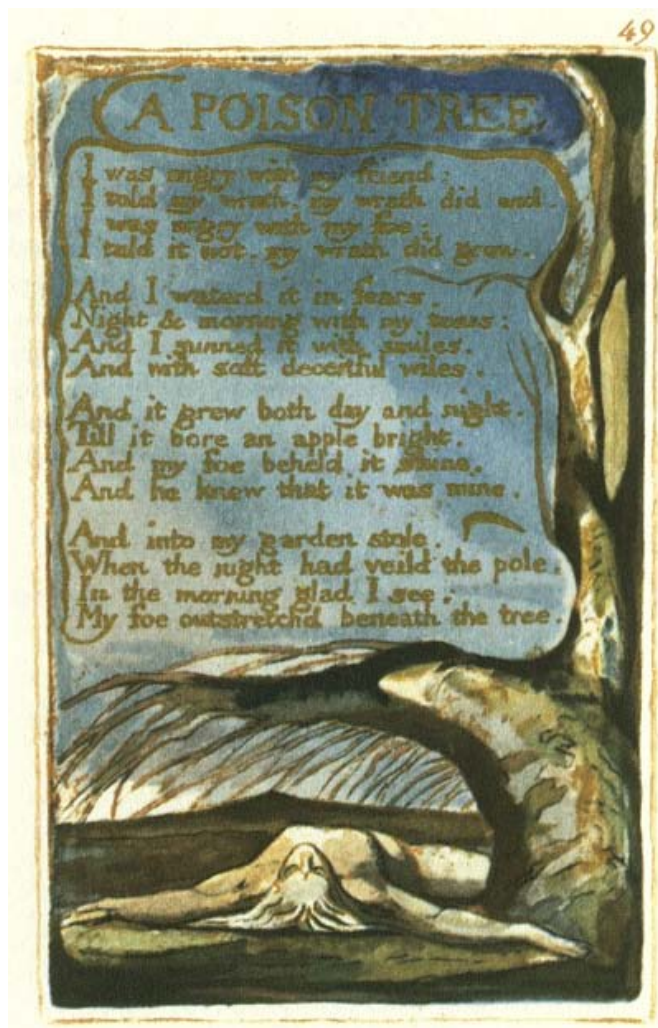 49
A POISON TREE.
I was angry with my friend:
I told my wrath, my wrath did end.
I was angry with my foe:
I told it not, my wrath did grow.
And I waterd it in fears,
Night & morning with my tears:
And I sunned it with smiles,
And with soft deceitful wiles.
And it grew both day and night.
Till it bore an apple bright.
And my foe beheld it shine,
And he knew that it was mine.
And into my garden stole.
When the night had veild the pole,
In the morning glad I see,
My foe outstretchd beneath the tree.